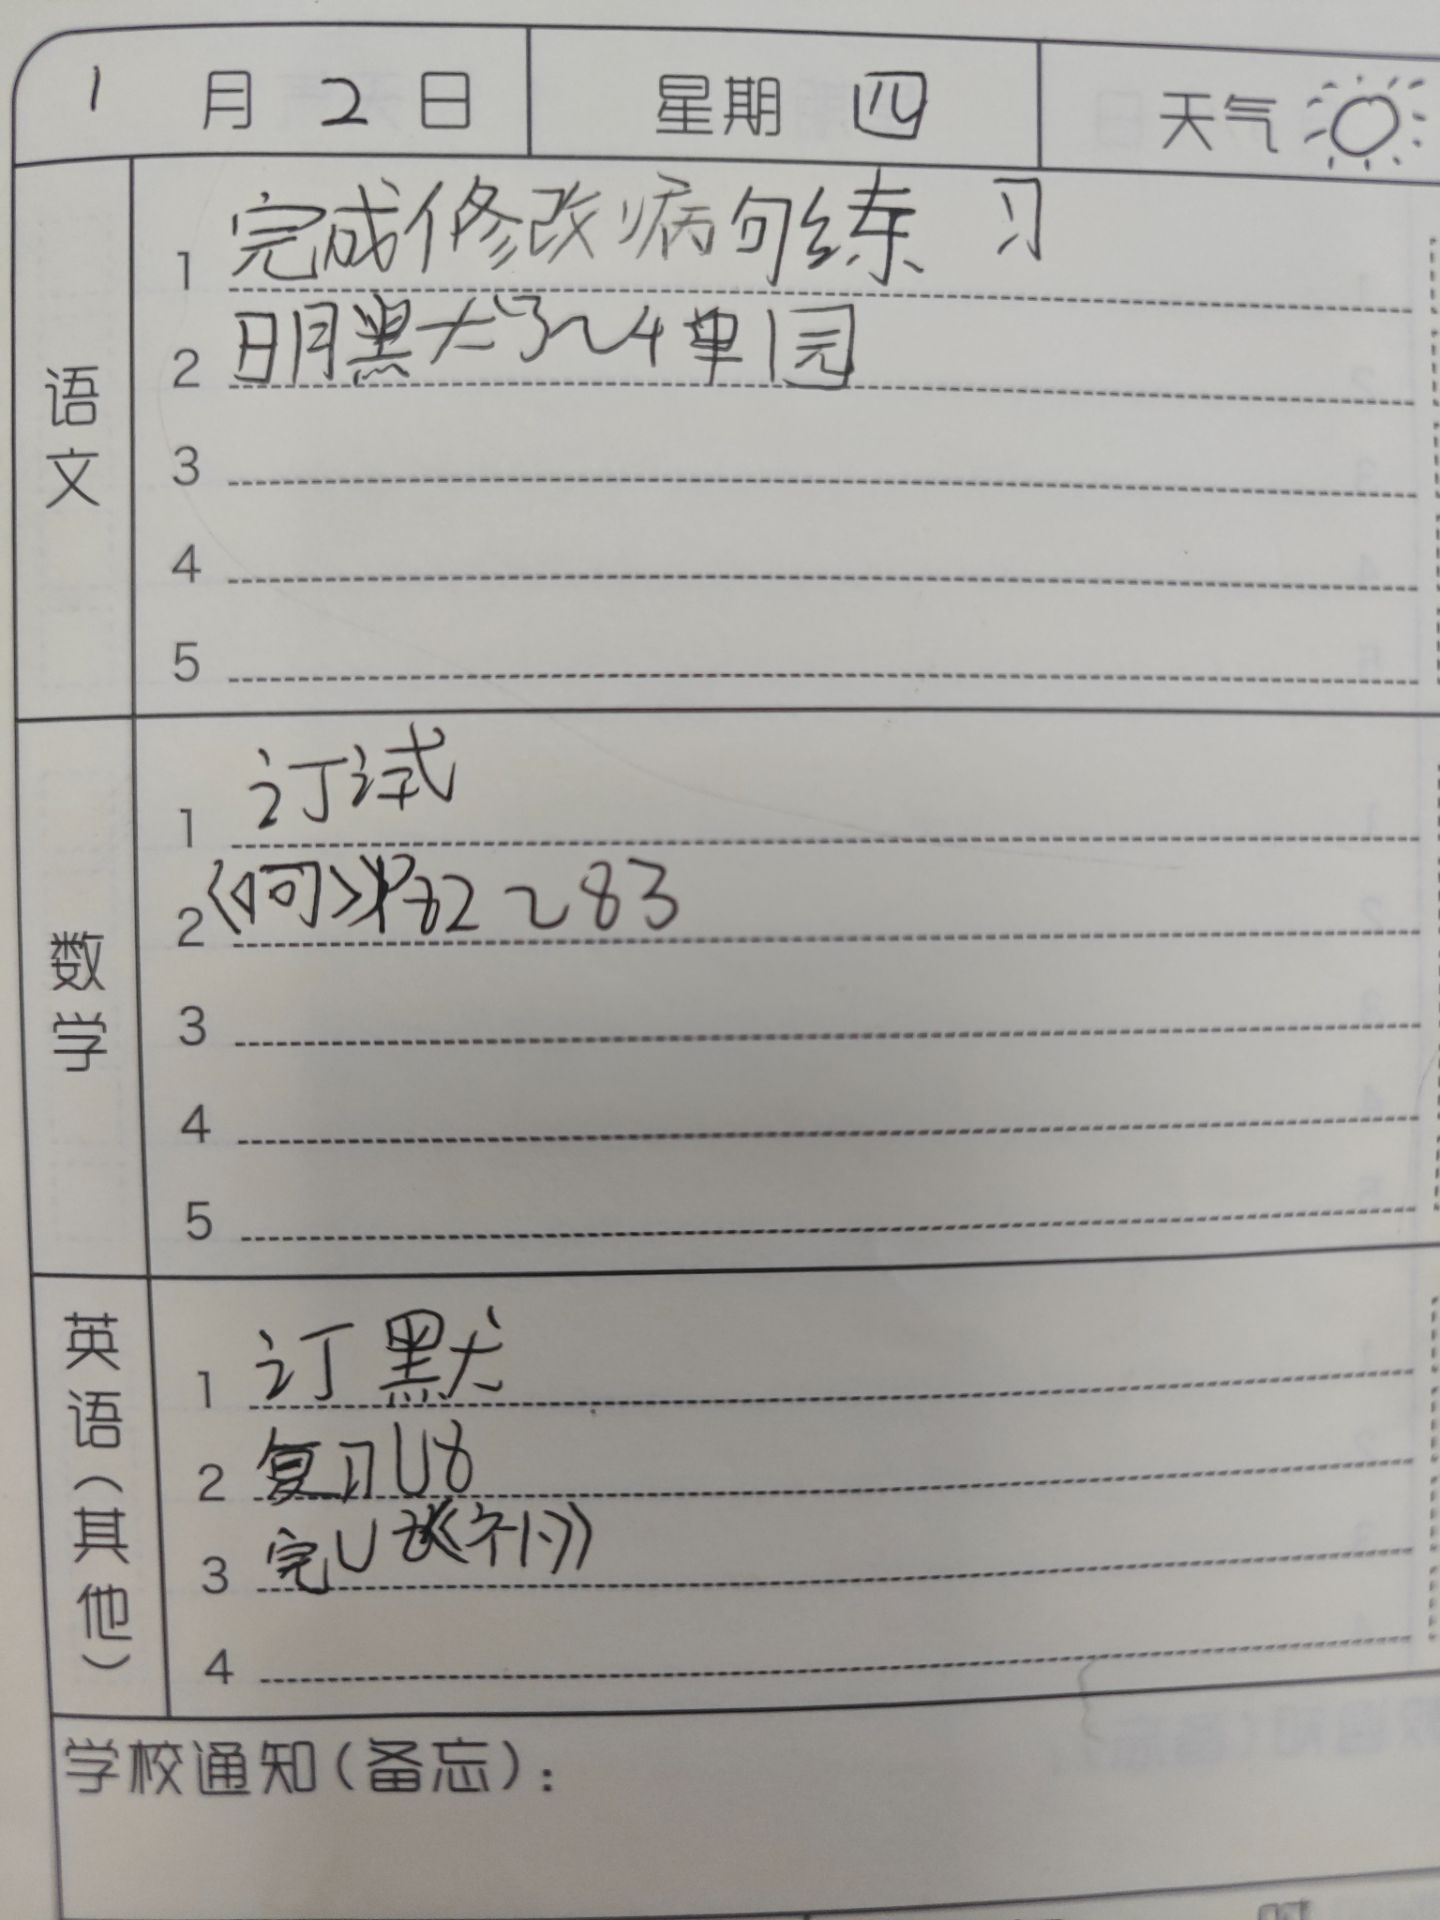 1月2日 星期四 天气
语文
1 完成修改病句练习
2 明默3~4单园
3
4
5
数学
1 订试
2 P82~83
3
4
5
英语(其他)
1 订默
2 复习U8
3 完U8《补》
4
学校通知(备忘):